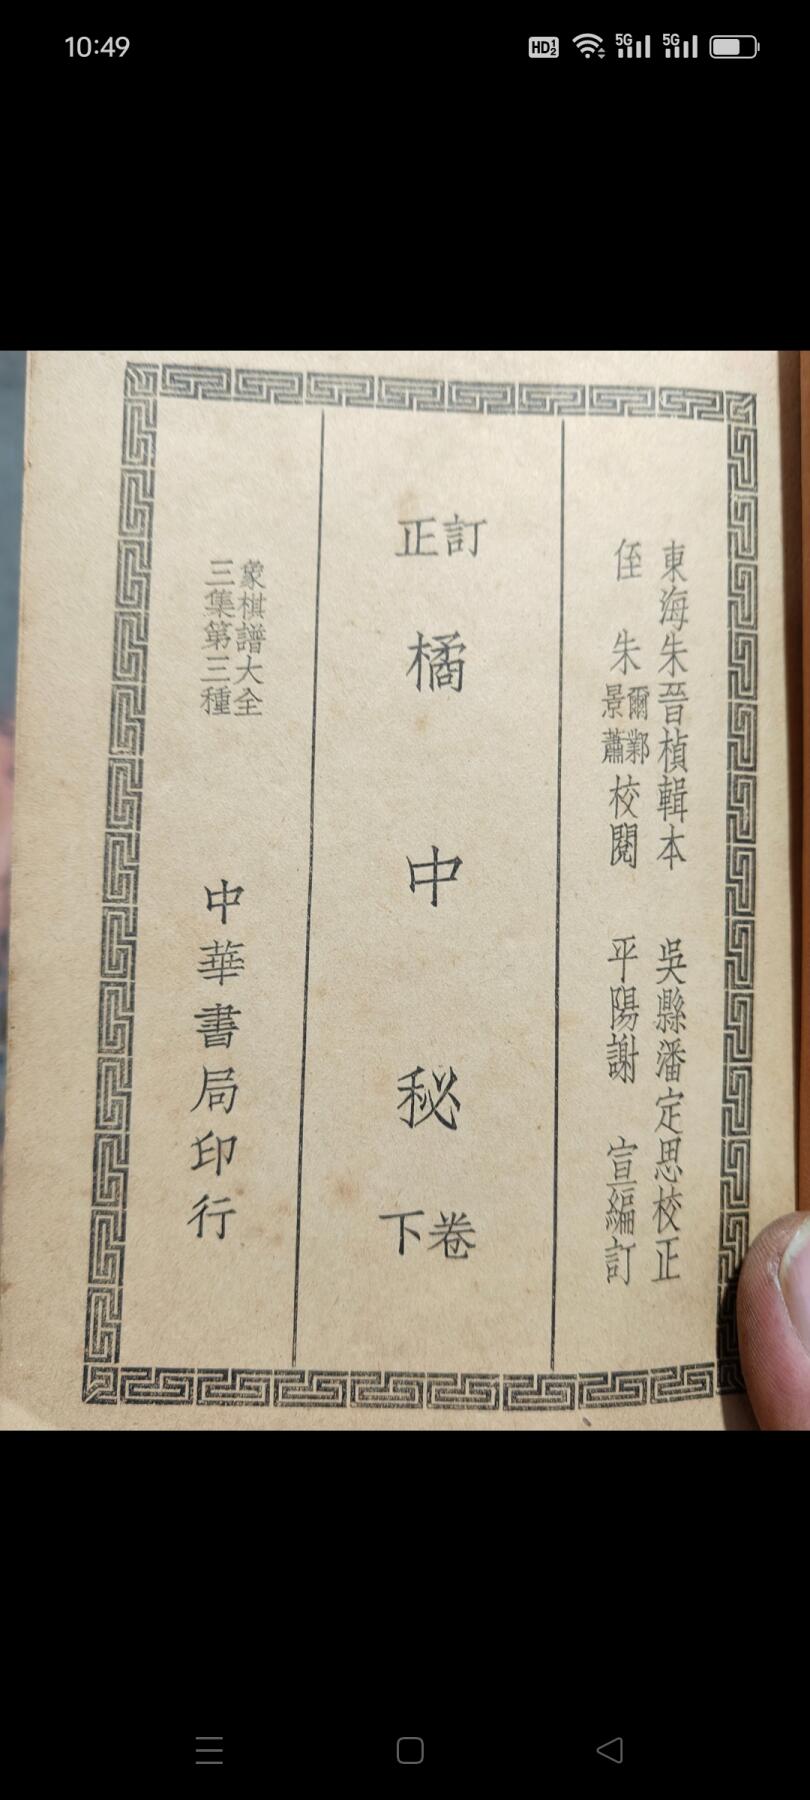 10:49
HD 1 2
5G
5G
東海朱晉楨輯本 吳縣潘定思校正
侄 朱爾鄴景蕭校閱 平陽謝 宣編訂
訂正
橘中秘
卷下
象棋譜大全
三集第三種
中華書局印行